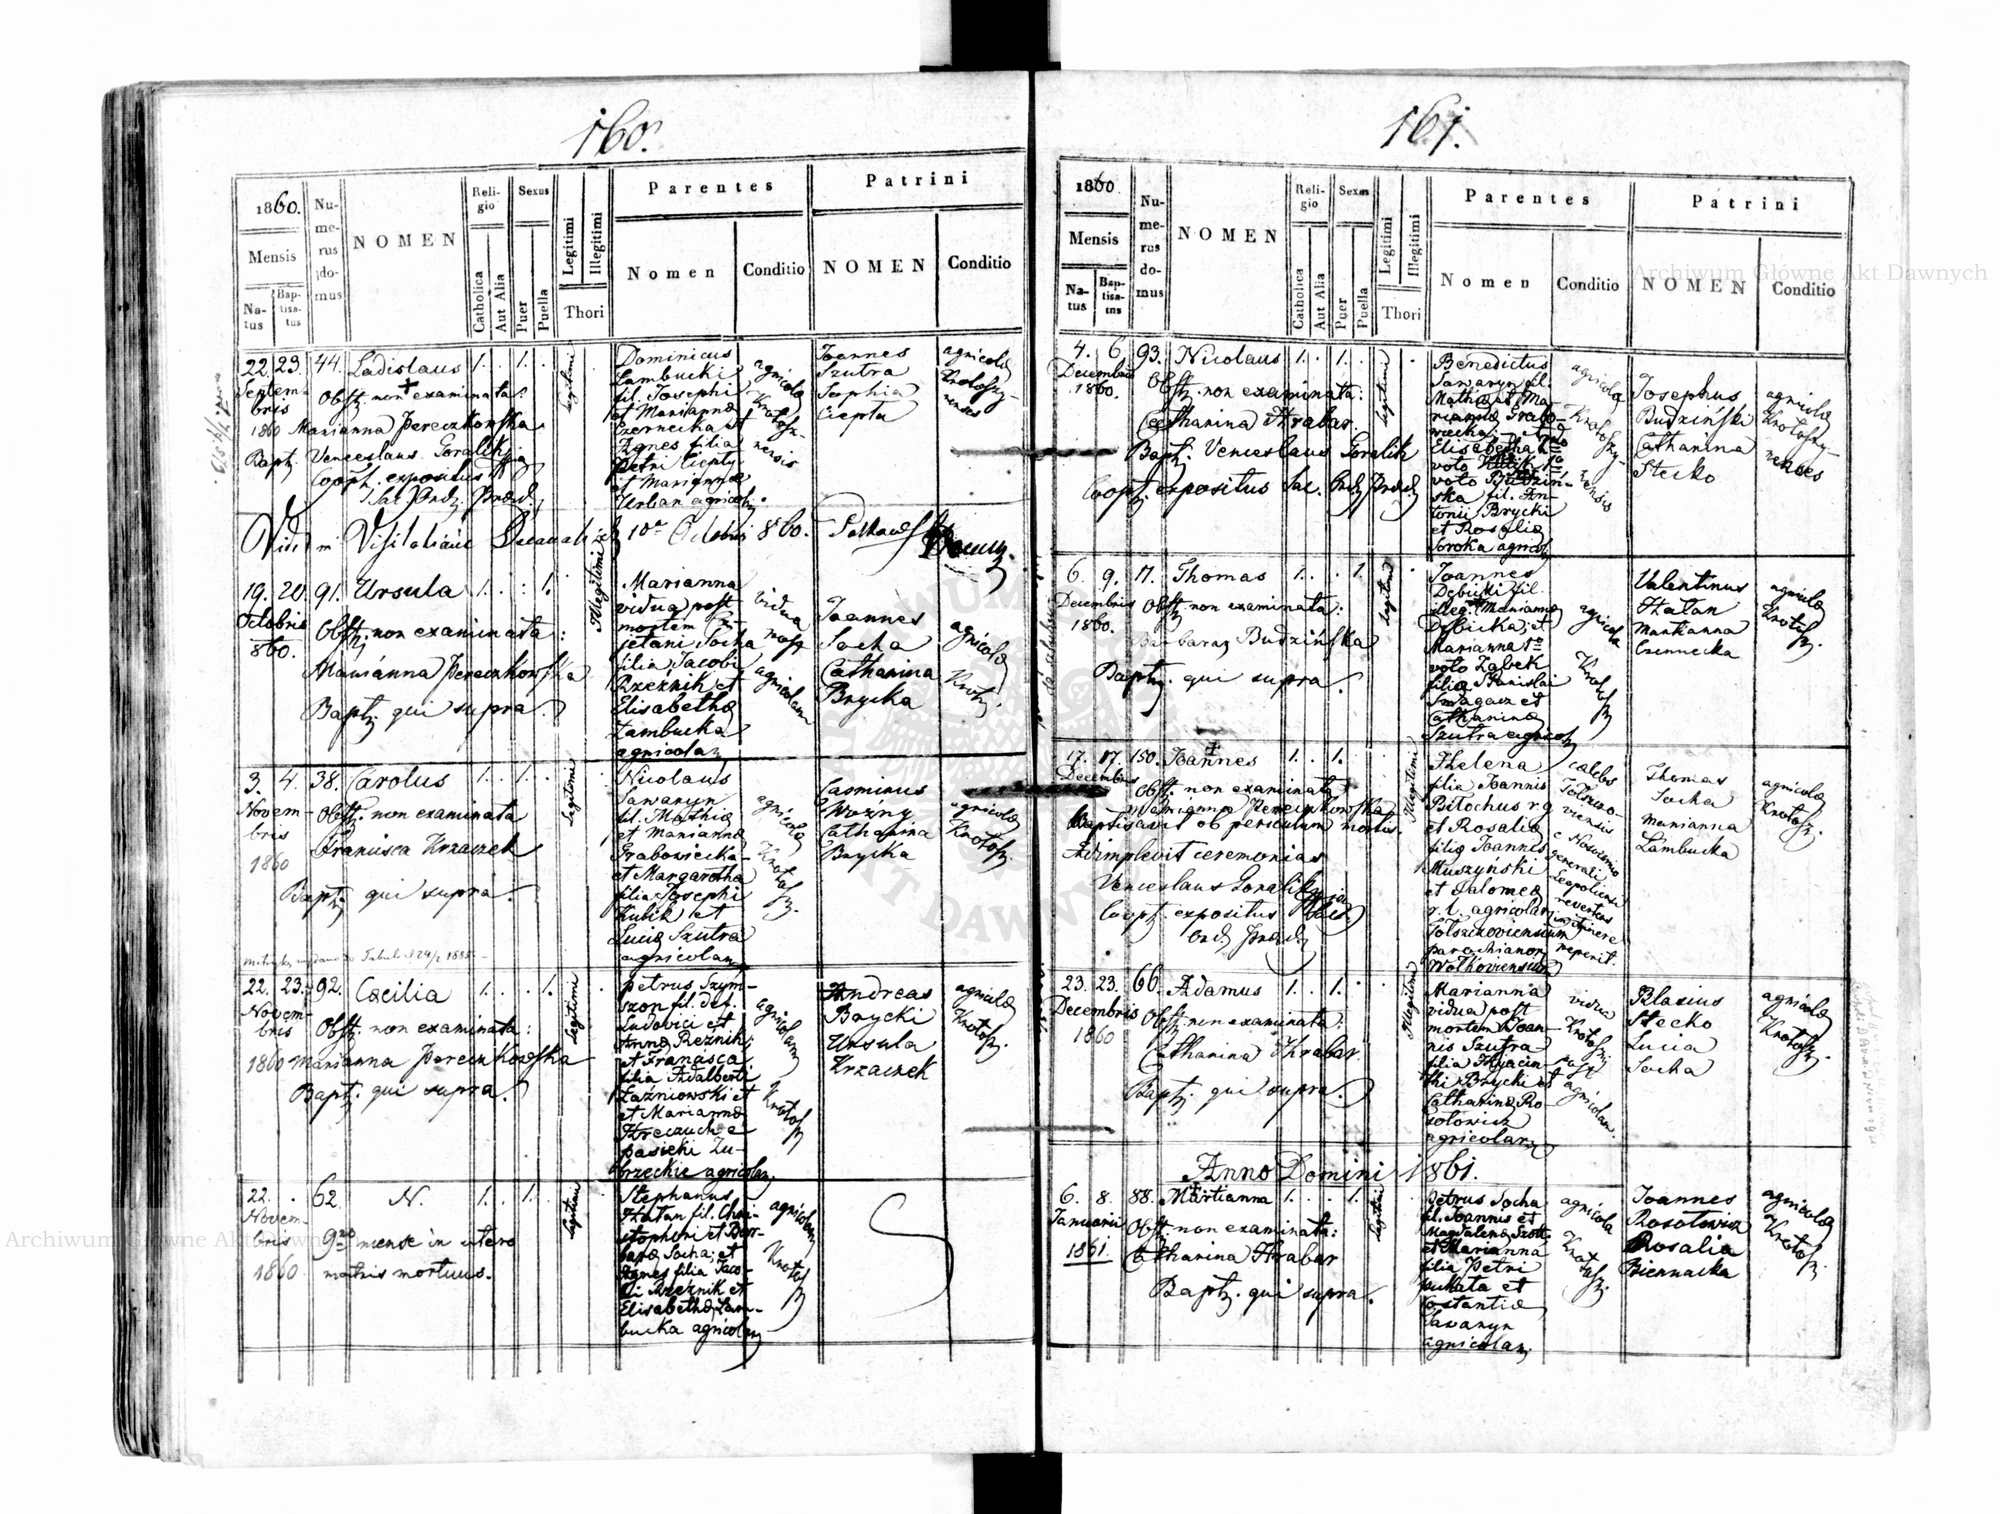 160.
1860.
Mensis
Na-
tus
Bap-
tisa-
tus
Nu-
me-
rus
do-
mus
NOMEN
Reli-
gio
Catholica
Aut Alia
Sexus
Puer
Puella
Legitimi
Illegitimi
Thori
Parentes
Nomen
Conditio
Patrini
NOMEN
Conditio
22. 23. 44. Ladislaus 1. . 1. .
Septem-
bris
1860
Obst. non examinata:
Marianna Pereczkowska
Bapt. Venceslaus Goralik
Coop. expositus
legitimi
Dominicus
Lambucki
fil. Josephi
et Marianna
Czernecka et
Agnes filia
Petri Ciepty
et Marianna
Urban agricol.
agricola
Krotosz-
nensis
Joannes
Szutra
Sophia
Ciepta
agricolæ
Krotoszy-
nenses
10a Octobris 860.
19. 20. 91. Ursula 1. . . 1.
Octobris
860.
Obst. non examinata:
Marianna Pereczkowska
Bapt. qui supra.
Illegitimi
Marianna
vidua post
mortem
jetani Socha
filia Jacobi
Rzeźnik et
Elisabetha
Lambucka
agricolar.
vidua
post
agricolam
Joannes
Socha
Catharina
Brycka
agricolæ
Krot.
3. 4. 38. Carolus 1. . 1. .
Novem-
bris
1860
Obst. non examinata
Francisca Krzaczek
Bapt. qui supra.
legitimi
Nicolaus
Sawaryn
fil. Mathiæ
et Marianna
Grabowiecka
et Margaretha
filia Josephi
Kubik et
Lucia Szutra
agricolar.
agricola
Krotosz.
Casimirus
Woźny
Catharina
Brycka
agricolæ
Krotosz.
22. 23. 92. Cæcilia 1. . . 1.
Novem-
bris
1860
Obst. non examinata:
Marianna Pereczkowska
Bapt. qui supra.
legitimi
Petrus Szym-
szon fil. def.
Ludovici et
Anna Reznik;
et Francisca
filia Adalberti
Łazniowski et
et Marianna
Hreczuch e
pasieki Zu-
brzeckie agricolar.
agricolam
Krotosz
Andreas
Brycki
Ursula
Krzaczek
agricolæ
Krotosz.
22. . 62. N. 1. . 1. .
Novem-
bris
1860
9no mense in utero
matris mortuus.
legitimi
Stephanus
Hałan fil. Chri-
stophori et Bar-
bara Socha; et
Agnes filia Jaco-
bi Rzeźnik et
Elisabetha Lam-
bucka agricolar
agricolam
Krotosz
161.
1860
Mensis
Na-
tus
Bap-
tisa-
tus
Nu-
me-
rus
do-
mus
NOMEN
Reli-
gio
Catholica
Aut Alia
Sexus
Puer
Puella
Legitimi
Illegitimi
Thori
Parentes
Nomen
Conditio
Patrini
NOMEN
Conditio
4. 6. 93. Nicolaus 1. . 1. .
Decembris
1860.
Obst. non examinata:
Catharina Hrabar.
Bapt. Venceslaus Goralik
Coop. expositus Sac.
legitimi
Benedictus
Sawaryn fil.
Mathiæ et Ma-
rianna Grabo-
wiecka; et
Elisabetha 2do
voto Kubik 1o
voto Budzin-
ska fil. An-
tonii Brycki
et Rosalia
Soroka agricol
agricola
Krotoszy-
nensis
Josephus
Budziński
Catharina
Stecko
agricolæ
Krotoszy-
nenses
6. 9. 17. Thomas 1. . . 1.
Decembris
1860.
Obst. non examinata:
Barbara Budzińska
Bapt. qui supra.
legitimi
Joannes
Dębicki fil.
illeg. Marianna
Dębicka; et
Marianna 1o
voto Ząbek
filia Stanislai
Smagacz et
Catharina
Szutra agricol
agricola
Krotosz
Valentinus
Hałan
Marianna
Czernecka
agricolæ
Krotosz.
17. 17. 150. Joannes 1. . 1.
Decembris
Obst. non examinat
Marianna Pereczkowska
Baptisavit ob periculum mortis.
Adimplevit ceremonias
Venceslaus Goralik
Coop. expositus
Illegitimi
Helena
filia Joannis
Bitochus r.g.
et Rosalia
filia Joannis
Muszyński
et Salomea
r. l. agricolar
Tolszczoviensium
parochianor
Wołkoviensium
cælebs
Tolszczo-
viensis
e Nosocomio
generali
Leopoliensi
revertens
in itinere
reperit.
Thomas
Socha
Marianna
Lambucka
agricolæ
Krotosz.
23. 23. 66. Adamus 1. . 1.
Decembris
1860
Obst. non examinata:
Catharina Hrabar.
Bapt. qui supra.
Illegitimi
Marianna
vidua post
mortem Joan-
nis Szutra
filia Hyacin-
thi Brycki et
Catharina Ro-
sołowicz
agricolar
vidua
Krotosz
post
agricolam.
Blasius
Stecko
Lucia
Socha
agricolæ
Krotosz.
Anno Domini 1861.
6. 8. 88. Marianna 1. . . 1.
Januarii
1861.
Obst. non examinata:
Catharina Hrabar
Bapt. qui supra.
legitimi
Petrus Socha
fil. Joannis et
Magdalena
et Marianna
filia Petri
et
Costantia
Sawaryn
agricolar.
agricola
Krotosz.
Joannes
Rosołowicz
Rosalia
Biernacka
agricolæ
Krotosz.
Archiwum Główne Akt Dawnych
Archiwum Główne Akt Dawnych